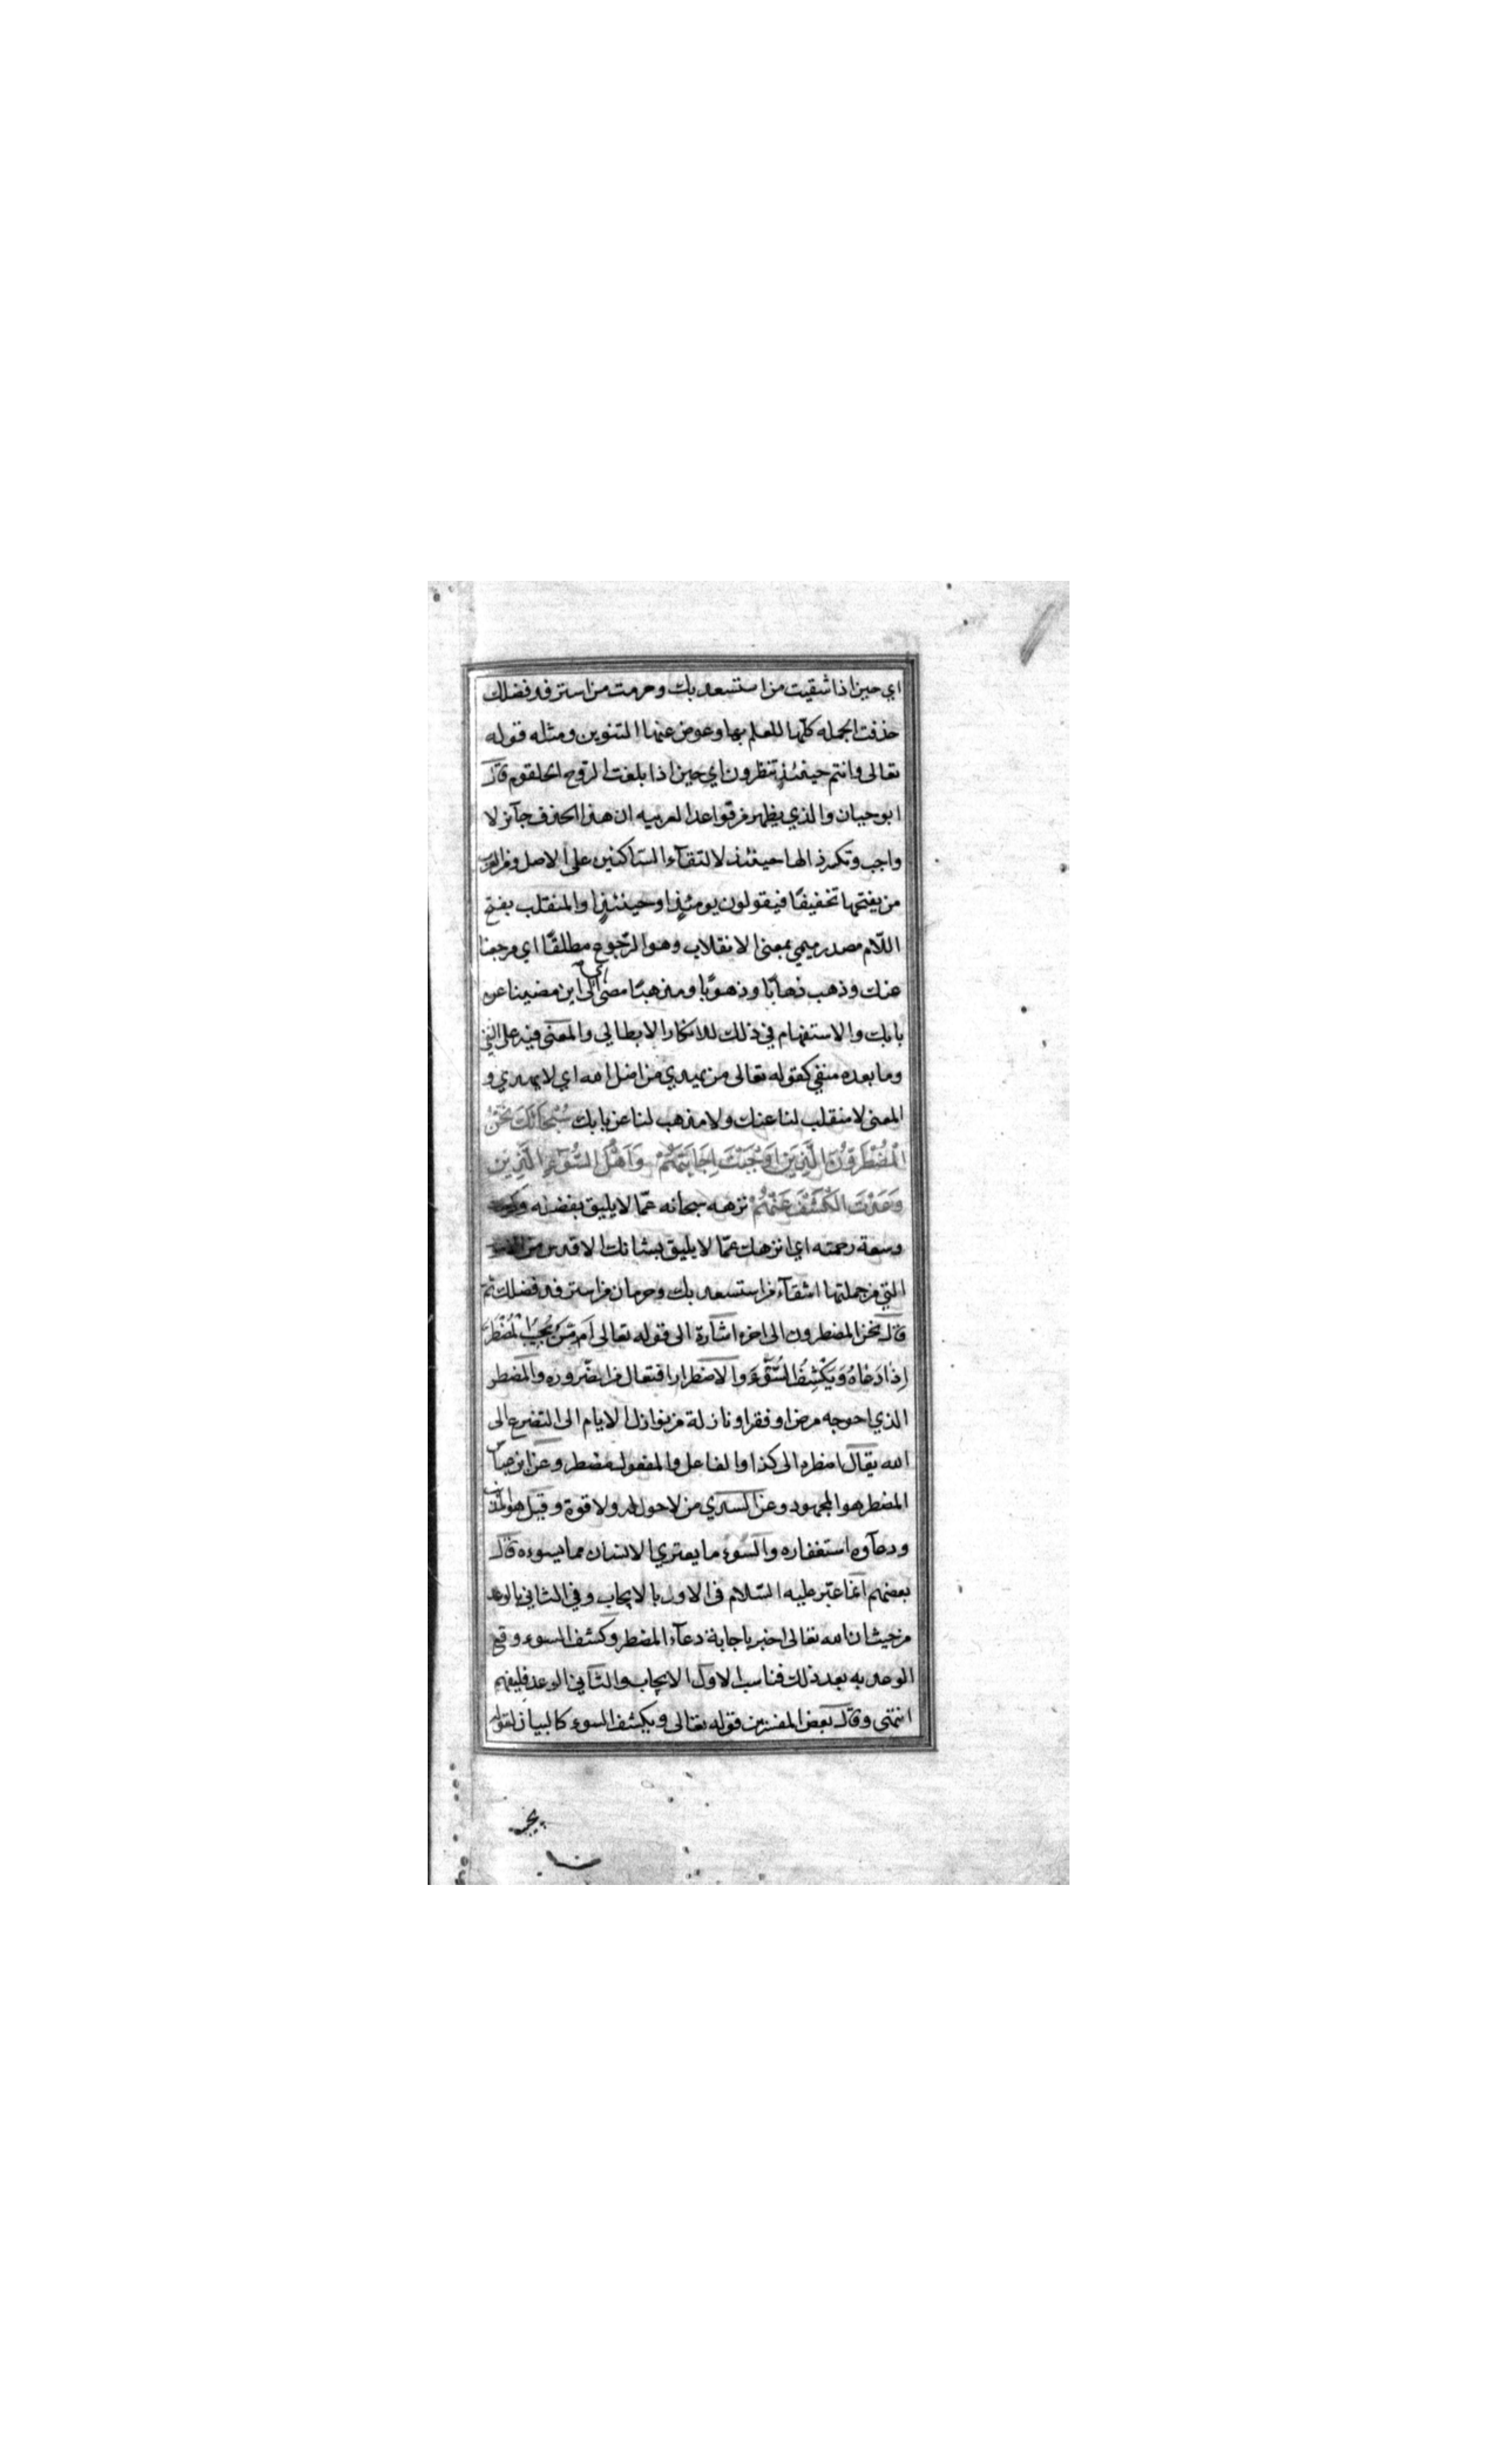 اي حين اذا شقيت من استسعد بك وحرمت من استرفد فضلك
حذفت الجمله كلها للعلم بها وعوض عنها التنوين ومثله قوله
تعالى وانتم حينئذٍ تنظرون اي حين اذا بلغت الروح الحلقوم قال
ابو حيان والذي يظهر من قواعد العربيه ان هذا الحذف جآئز لا
واجب وتكسر ذالها حينئذ لالتقآء الساكنين على الاصل ومن العرب
من يفتحها تخفيفًا فيقولون يومئذٍا وحينئذٍا والمنقلب بفتح
اللّام مصدر ميمي بمعنى الانقلاب وهو الرّجوع مطلقًا اي مرجعنا
عنك وذهب ذهابًا وذهوبًا ومذهبًا مضى اي الى اين مضينا عن
بابك والاستفهام في ذلك للانكار الابطالي والمعنى فيه على النفي
وما بعده منفي كقوله تعالى من يهدي من اضل الله اي لا يهدي و
المعنى لا منقلب لنا عنك ولا مذهب لنا عن بابك سُبْحَانَكَ نَحْنُ
الْمُضْطَرُّونَ الَّذِينَ اَوْجَبْتَ اِجَابَتَهُمْ وَاَهْلُ السُّوٓءِ الَّذِينَ
وَعَدْتَ الْكَشْفَ عَنْهُمْ نزهه سبحانه عمّا لا يليق بفضله
وسعة رحمته اي انزهك عمّا لا يليق بشانك الاقدس من
التي من جملتها اشقآء من استسعد بك وحرمان من استرفد فضلك ثم
قال نحن المضطرون الى اخره اشارة الى قوله تعالى اَم مَّنْ يُجِيْبُ الْمُضْطَرَّ
اِذَا دَعَاهُ وَيَكْشِفُ السُّوٓءَ والاضطرار افتعال من الضّروره والمضطر
الذي احوجه مرض او فقر او نازلة من نوازل الايام الى التضرع الى
الله يقال اضطره الى كذا والفاعل والمفعول مضطر وعن ابن عباس
المضطر هو المجهود وعن السدي من لا حول له ولا قوة وقيل هو المذنب
ودعآوه استغفاره والسّوء ما يعتري الانسان مما يسوءه قال
بعضهم انّما عبّر عليه السّلام في الاول بالايجاب وفي الثاني بالوعد
من حيث ان الله تعالى اخبر باجابة دعآء المضطر وكشف السوء وقع
الوعد به بعد ذلك فناسب الاول الايجاب والثاني الوعد فليفهم
انتهى وقال بعض المفسرين قوله تعالى ويكشف السوء كالبيان لقوله